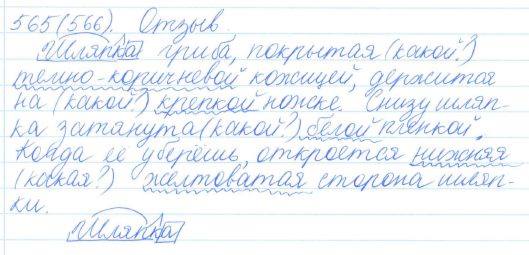 565(566). Отзыв.
Шляпка гриба, покрытая (какой?)
темно-коричневой кожицей, держится
на (какой?) крепкой ножке. Снизу шляп-
ка затянута (какой?) белой плёнкой.
Когда её уберёшь, откроется нижняя
(какая?) желтоватая сторона шляп-
ки.
Шляпка